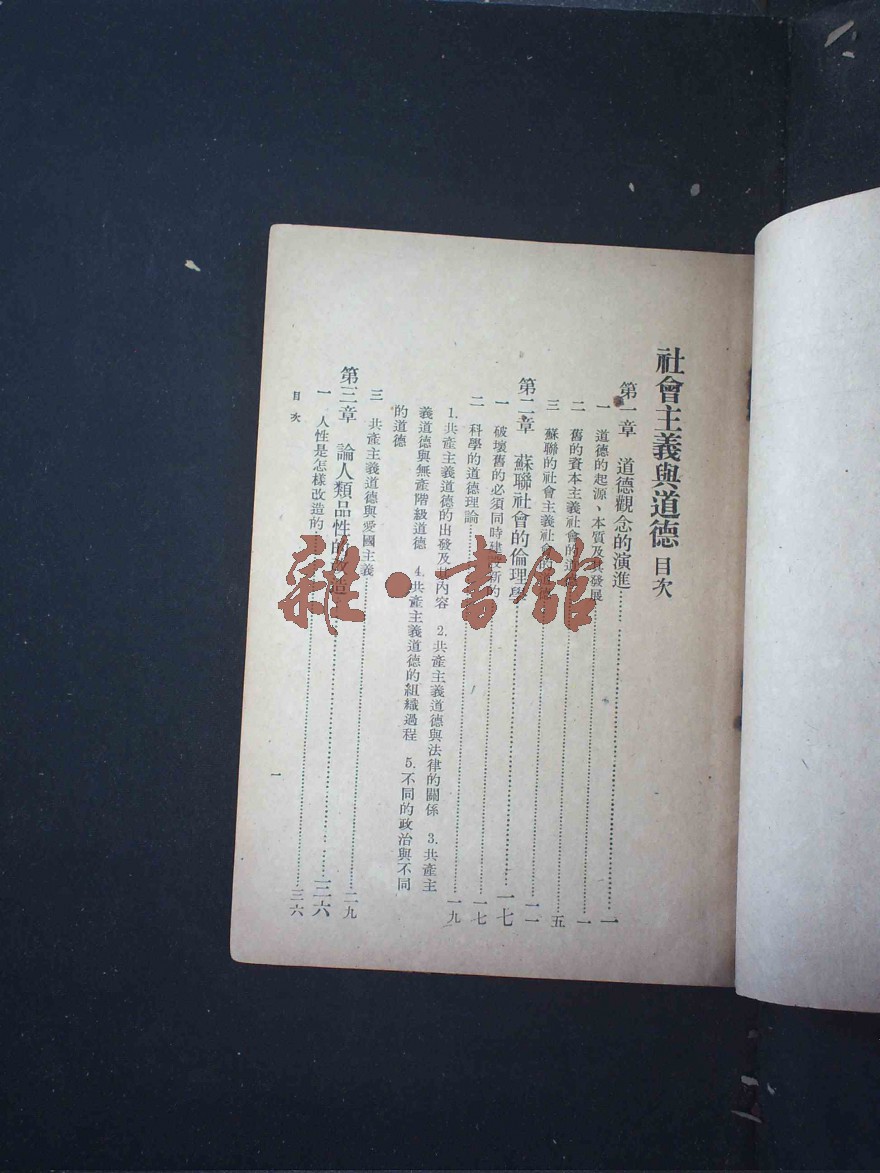 社會主義與道德 目次
第一章 道德觀念的演進……一
一 道德的起源、本質及其發展……一
二 舊的資本主義社會的道德……五
三 蘇聯的社會主義社會的……一一
第二章 蘇聯社會的倫理學……一七
一 破壞舊的必須同時建設新的……一七
二 科學的道德理論……一九
1.共產主義道德的出發及其內容 2.共產主義道德與法律的關係 3.共產主
義道德與無產階級道德 4.共產主義道德的組織過程 5.不同的政治與不同
的道德
三 共產主義道德與愛國主義……二九
第三章 論人類品性的改造……三六
一 人性是怎樣改造的……三六
目次
一
雜·書館